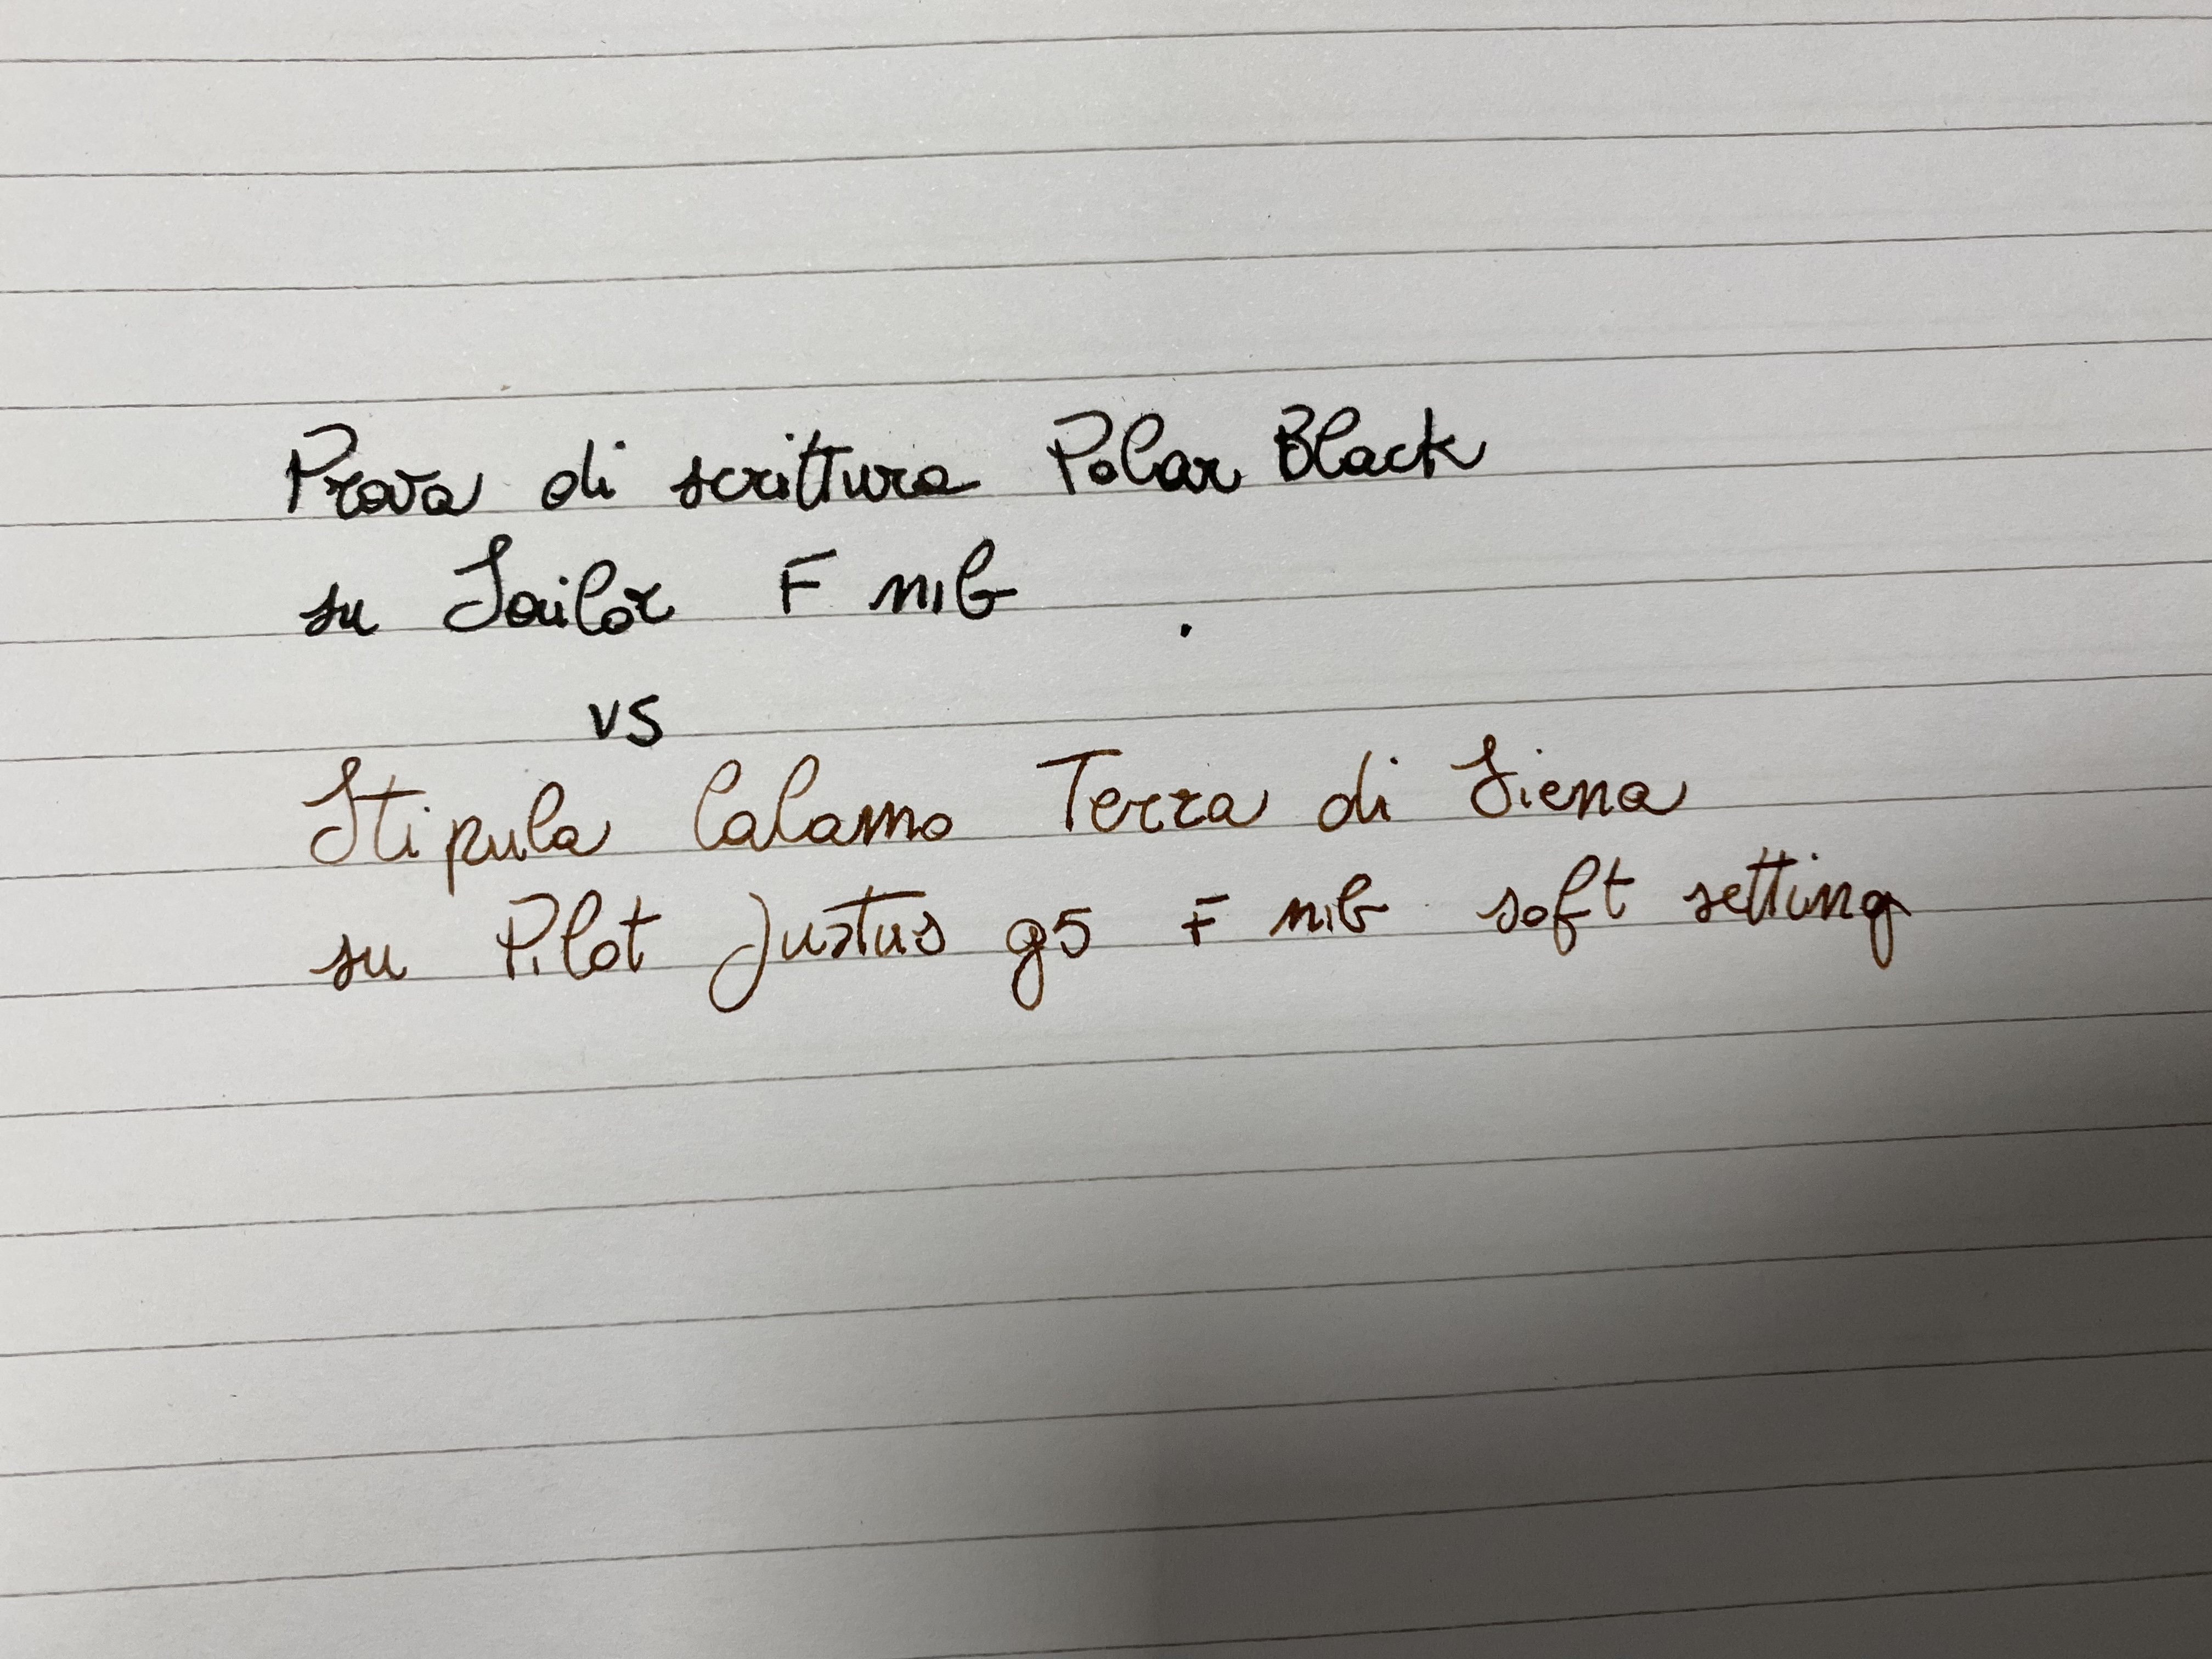 Prova di scrittura Polar Black
su Sailor F nib .
vs
Stipula Calamo Terra di Siena
su Pilot Justus 95 F nib soft setting